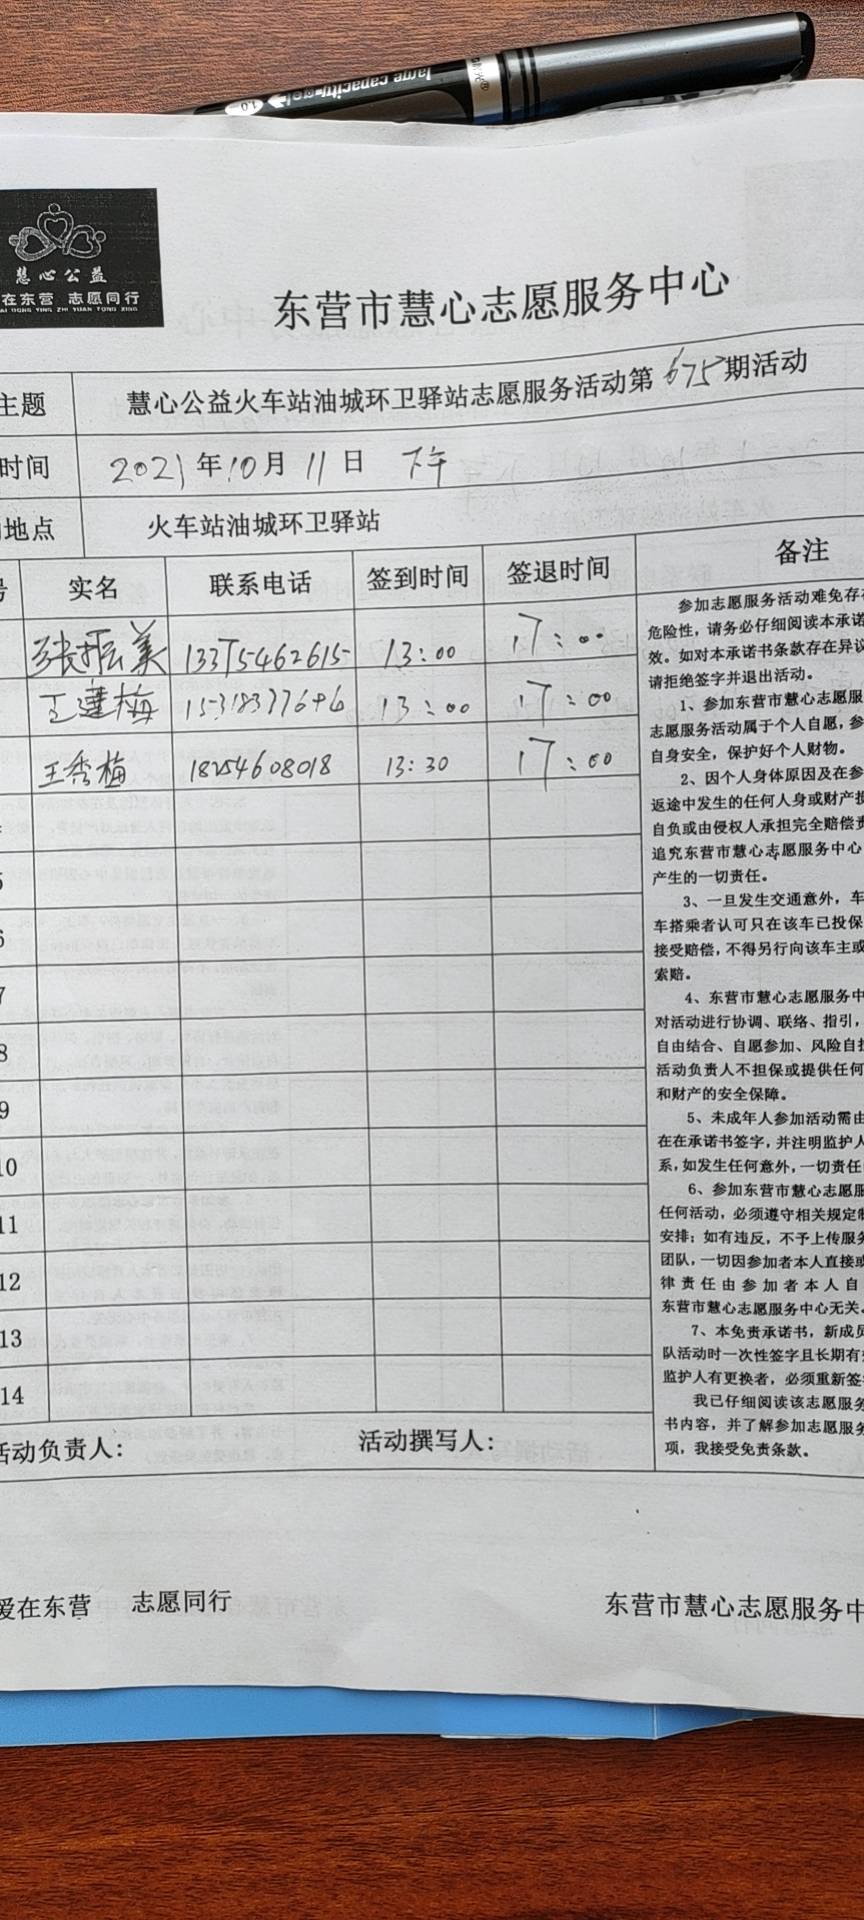 large capacity gel
1.0
慧心公益
在东营 志愿同行
AI DONG YING ZHI YUAN TONG XING
东营市慧心志愿服务中心
主题 慧心公益火车站油城环卫驿站志愿服务活动第675期活动
时间 2021年10月11日 下午
地点 火车站油城环卫驿站
号 实名 联系电话 签到时间 签退时间 备注
张振美 13375462615 13:00 17:00
王莲梅 15318377646 13:00 17:00
王秀梅 18254608018 13:30 17:00
5
6
7
8
9
10
11
12
13
14
参加志愿服务活动难免存
危险性，请务必仔细阅读本承诺
效。如对本承诺书条款存在异议
请拒绝签字并退出活动。
1、参加东营市慧心志愿服
志愿服务活动属于个人自愿，参
自身安全，保护好个人财物。
2、因个人身体原因及在参
返途中发生的任何人身或财产损
自负或由侵权人承担完全赔偿责
追究东营市慧心志愿服务中心
产生的一切责任。
3、一旦发生交通意外，车
车搭乘者认可只在该车已投保
接受赔偿，不得另行向该车主或
索赔。
4、东营市慧心志愿服务中
对活动进行协调、联络、指引，
自由结合、自愿参加、风险自担
活动负责人不担保或提供任何
和财产的安全保障。
5、未成年人参加活动需由
在在承诺书签字，并注明监护人
系，如发生任何意外，一切责任
6、参加东营市慧心志愿服
任何活动，必须遵守相关规定制
安排；如有违反，不予上传服务
团队，一切因参加者本人直接或
律责任由参加者本人自
东营市慧心志愿服务中心无关。
7、本免责承诺书，新成员
队活动时一次性签字且长期有
监护人有更换者，必须重新签
我已仔细阅读该志愿服务
书内容，并了解参加志愿服务
项，我接受免责条款。
活动负责人： 活动撰写人：
爱在东营 志愿同行 东营市慧心志愿服务中